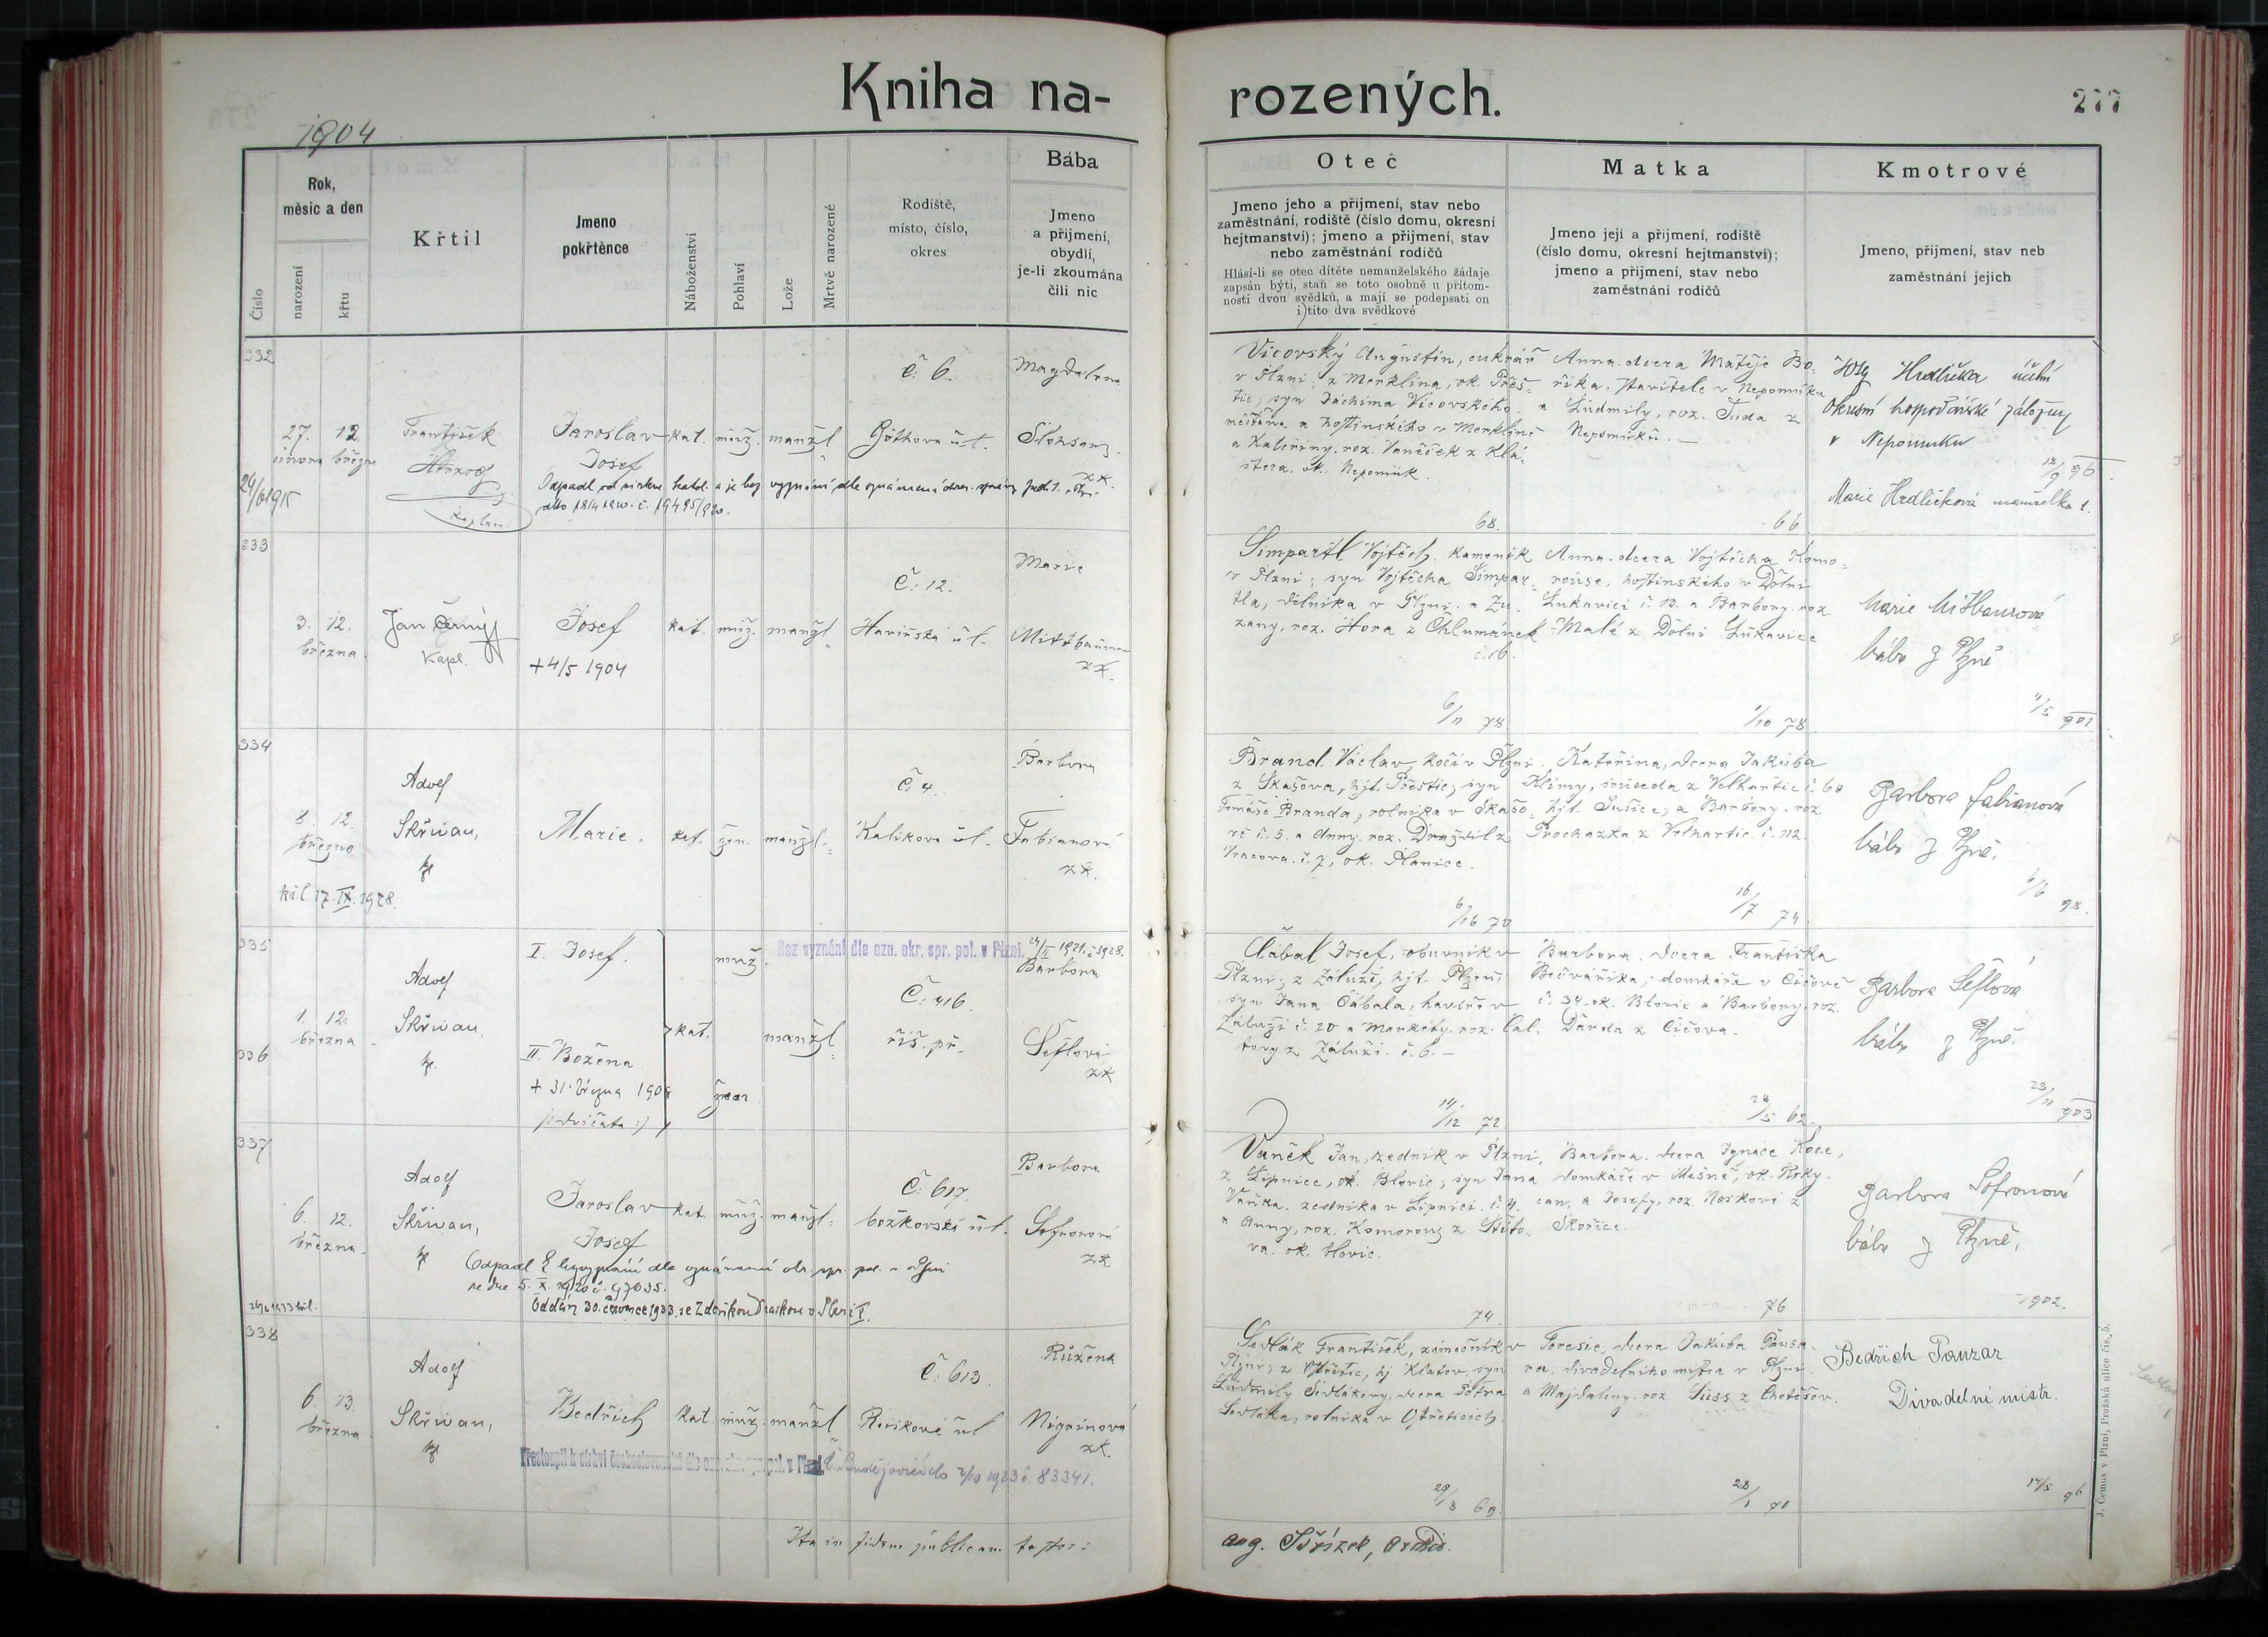 Kniha na-
rozených.
277
1904
Číslo
Rok,
měsíc a den
narození
křtu
Křtil
Jmeno
pokřtěnce
Náboženství
Pohlaví
Lože
Mrtvě narozené
Rodiště,
místo, číslo,
okres
Bába
Jmeno
a přijmení,
obydlí,
je-li zkoumána
čili nic
Oteč
Jmeno jeho a přijmení, stav nebo
zaměstnání, rodiště (číslo domu, okresní
hejtmanství); jmeno a přijmení, stav
nebo zaměstnání rodičů
Hlásí-li se otec dítěte nemanželského žádaje
zapsán býti, staň se toto osobně u přítom-
nosti dvou svědků, a mají se podepsati on
i tito dva svědkové
Matka
Jmeno její a přijmení, rodiště
(číslo domu, okresní hejtmanství);
jmeno a přijmení, stav nebo
zaměstnání rodičů
Kmotrové
Jmeno, přijmení, stav neb
zaměstnání jejich
332
27. 12.
února března
František
Herzog
kaplan
Jaroslav
Josef
kat. muž. manžl
č. 6.
Göthova ul.
Magdalena
zk.
Vicovský Augustin, cukrář
v Plzni; z Merklína, ok. Přeš-
tic, syn Jáchima Vicovského,
měšťana a hostinského v Merklíně
a Kateřiny, roz. Vaněček z Klá-
štera, ok. Nepomuk.
68.
Anna, dcera Matěje Bo-
říka, stavitele v Nepomuku
a Ludmily, roz. Tuda z
Nepomuku.
66
Hrdlička účetní
Okresní hospodářské záložny
v Nepomuku
18/9 96
Marie Hrdličková manželka t.
333
3. 12.
března.
Jan Černý
kapl.
Josef
+ 4/5 1904
kat. muž. manžl.
Č. 12.
Havířská ul.
Marie
Mittbauer
zk.
Šimpartl Vojtěch, kameník
v Plzni; syn Vojtěcha Šimpar-
tla, dělníka v Plzni a Zu-
zany, roz. Hora z Chlumánek
č. 16.
6/11 78
Anna, dcera Vojtěcha Komo-
rouse, hostinského v Dolní
Lukavici č. 13. a Barbory, roz.
Malé z Dolní Lukavice
1/10 78
Marie Mittbaurová
bába z Plzně
4/5 901
334
8. 12.
března
Adolf
Skřivan,
kp
Marie.
kat. žen. manžl.
Č. 4.
Kalikova ul.
Barbora
Fabianová
zk.
17. IX. 1928.
Brand Václav, kočí v Plzni
z Skašova, hjt. Přeštic, syn
Tomáše Branda, rolníka v Skašo-
vě č. 5. a Anny, roz. Draždil z
č. 7, ok. Planice.
70
Kateřina, dcera Jakuba
Klimy, souseda z Velhartic č. 60
hjt. Sušice, a Barbory, roz.
Procházka z Velhartic č. 112.
16/7 74.
Barbora Fabianová
bába z Plzně.
6/6 98.
335
336
1. 12.
března
Adolf
Skřivan,
kp.
I. Josef.
II. Božena
+ 31. března 1904
(: dvojčata :)
kat.
muž.
žen.
manžl.
Bez vyznání dle ozn. okr. spr. pol. v Plzni. 24/II 1921. č. 3928.
Č. 416.
říš. př.
Barbora
Šeflová
zk
Čábal Josef, obuvník v
Plzni; z Záluží, hjt. Plzeň,
syn Jana Čábala, havíře v
Záluží č. 20 a Markéty, roz. Cal-
tovy z Záluží č. 6.
14/12 72
Barbora, dcera Františka
Bečváříka, domkáře v Čičově
č. 34. ok. Blovic a Barbory, roz.
Darda z Čičova.
28/5 62
Barbora Šeflová
bába z Plzně.
23/11 903
337
6. 12.
března.
Adolf
Skřivan,
kp
Jaroslav
Josef
kat. muž. manžl.
Č. 617.
božkovská ul.
Barbora
Sofronová
zk
Oddán 30. července 1933. se Zdeňkou v Plzni I.
Vaněk Jan, zedník v Plzni,
z Lipnice, ok. Blovic; syn Jana
Vaňka, zedníka v Lipnici č. 4.
a Anny, roz. Komorous z Štíto-
va, ok. Blovic.
74.
Barbora, dcera Ignáce Koce,
domkáře v Mešně, ok. Roky-
can, a Josefy, roz. Noskové z
Skořice.
76
Barbora Sofronová
bába z Plzně,
1902.
338
6. 13
března
Adolf
Skřivan,
kp
Bedřich
kat. muž. manžl.
Č. 613.
ul
Růžena
Nigrinová
zk.
2/10 1923 č. 83341.
Sedlák František, zámečník v
Plzni; z Otřetic, hj. Klatov, syn
Ludmily Sedlákovy, dcera Petra
Sedláka, rolníka v Otřeticích.
29/3 69
Teresie, dcera Jakuba Panza-
ra, divadelního mistra v Plzni
a Majdaleny, roz. Süss z Chotěšov.
28/1 71
Bedřich Panzar
Divadelní mistr.
17/5 96
Ita in fidem publicam testor:
Aug. , Archid.
J. Cemus v Plzni, Pražská ulice čís. 5.